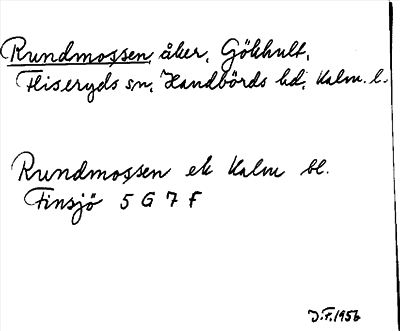 Rundmossen, åker, Gökhult,
Fliseryds sn, Handbörds hd, Kalm. l.
Rundmossen ek Kalm bl.
Finsjö 5 G 7 f
J.F. 1956